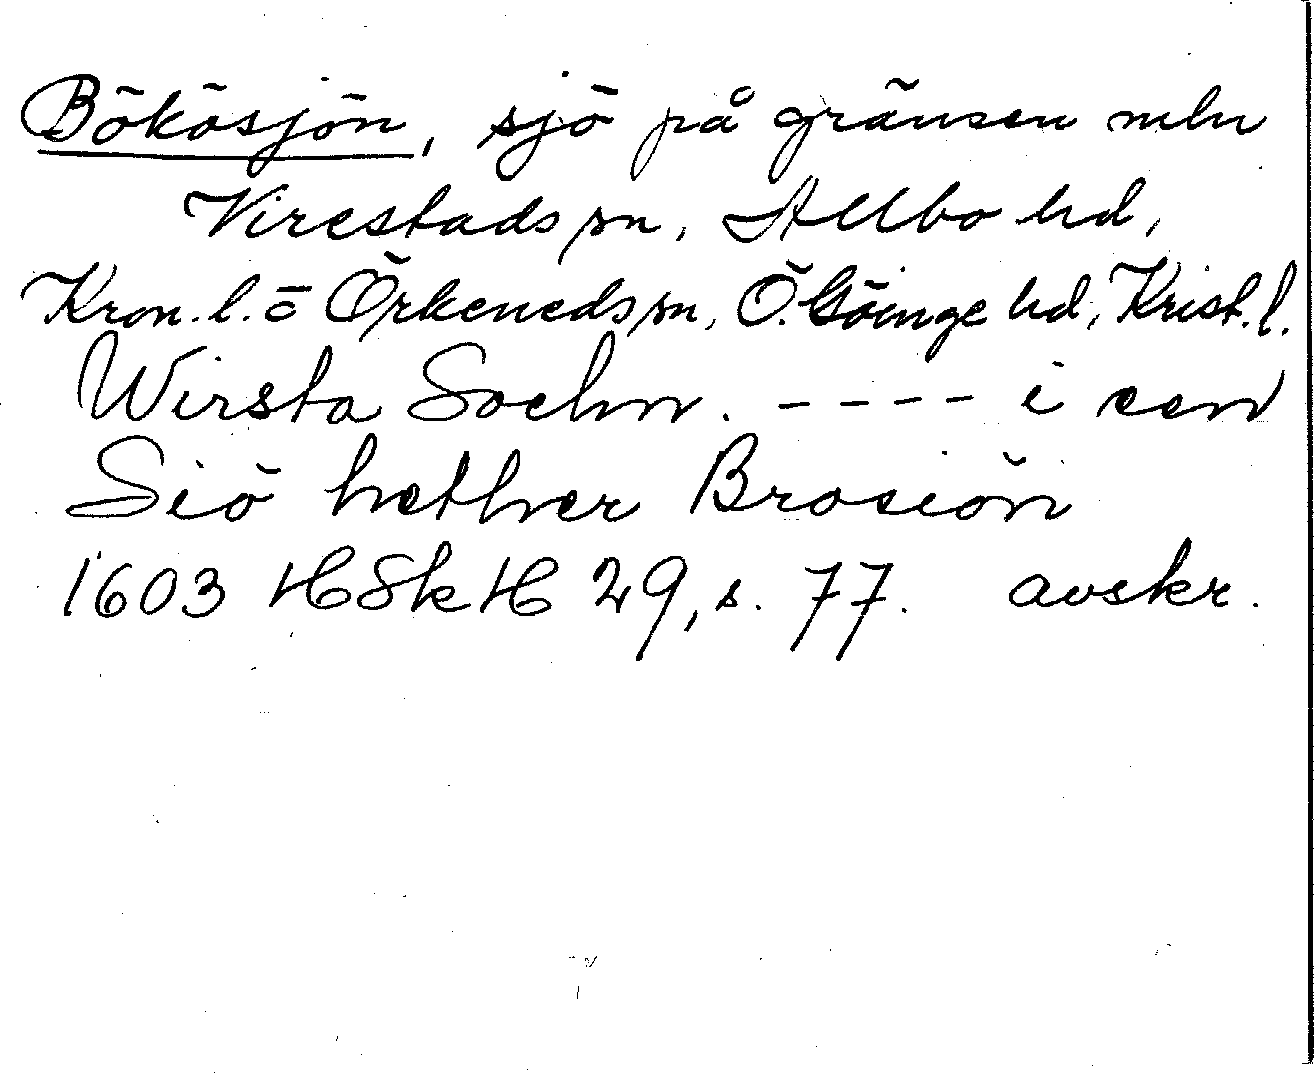 Bökösjön, sjö på gränsen mln
Virestads sn, Allbo hd,
Kron. l. o Örkeneds sn, Ö. Göinge hd, Krist. l.
Wirsta Sochn. ---- i een
Siö hether Brosiön
1603 HSkH 29, s. 77. avskr.